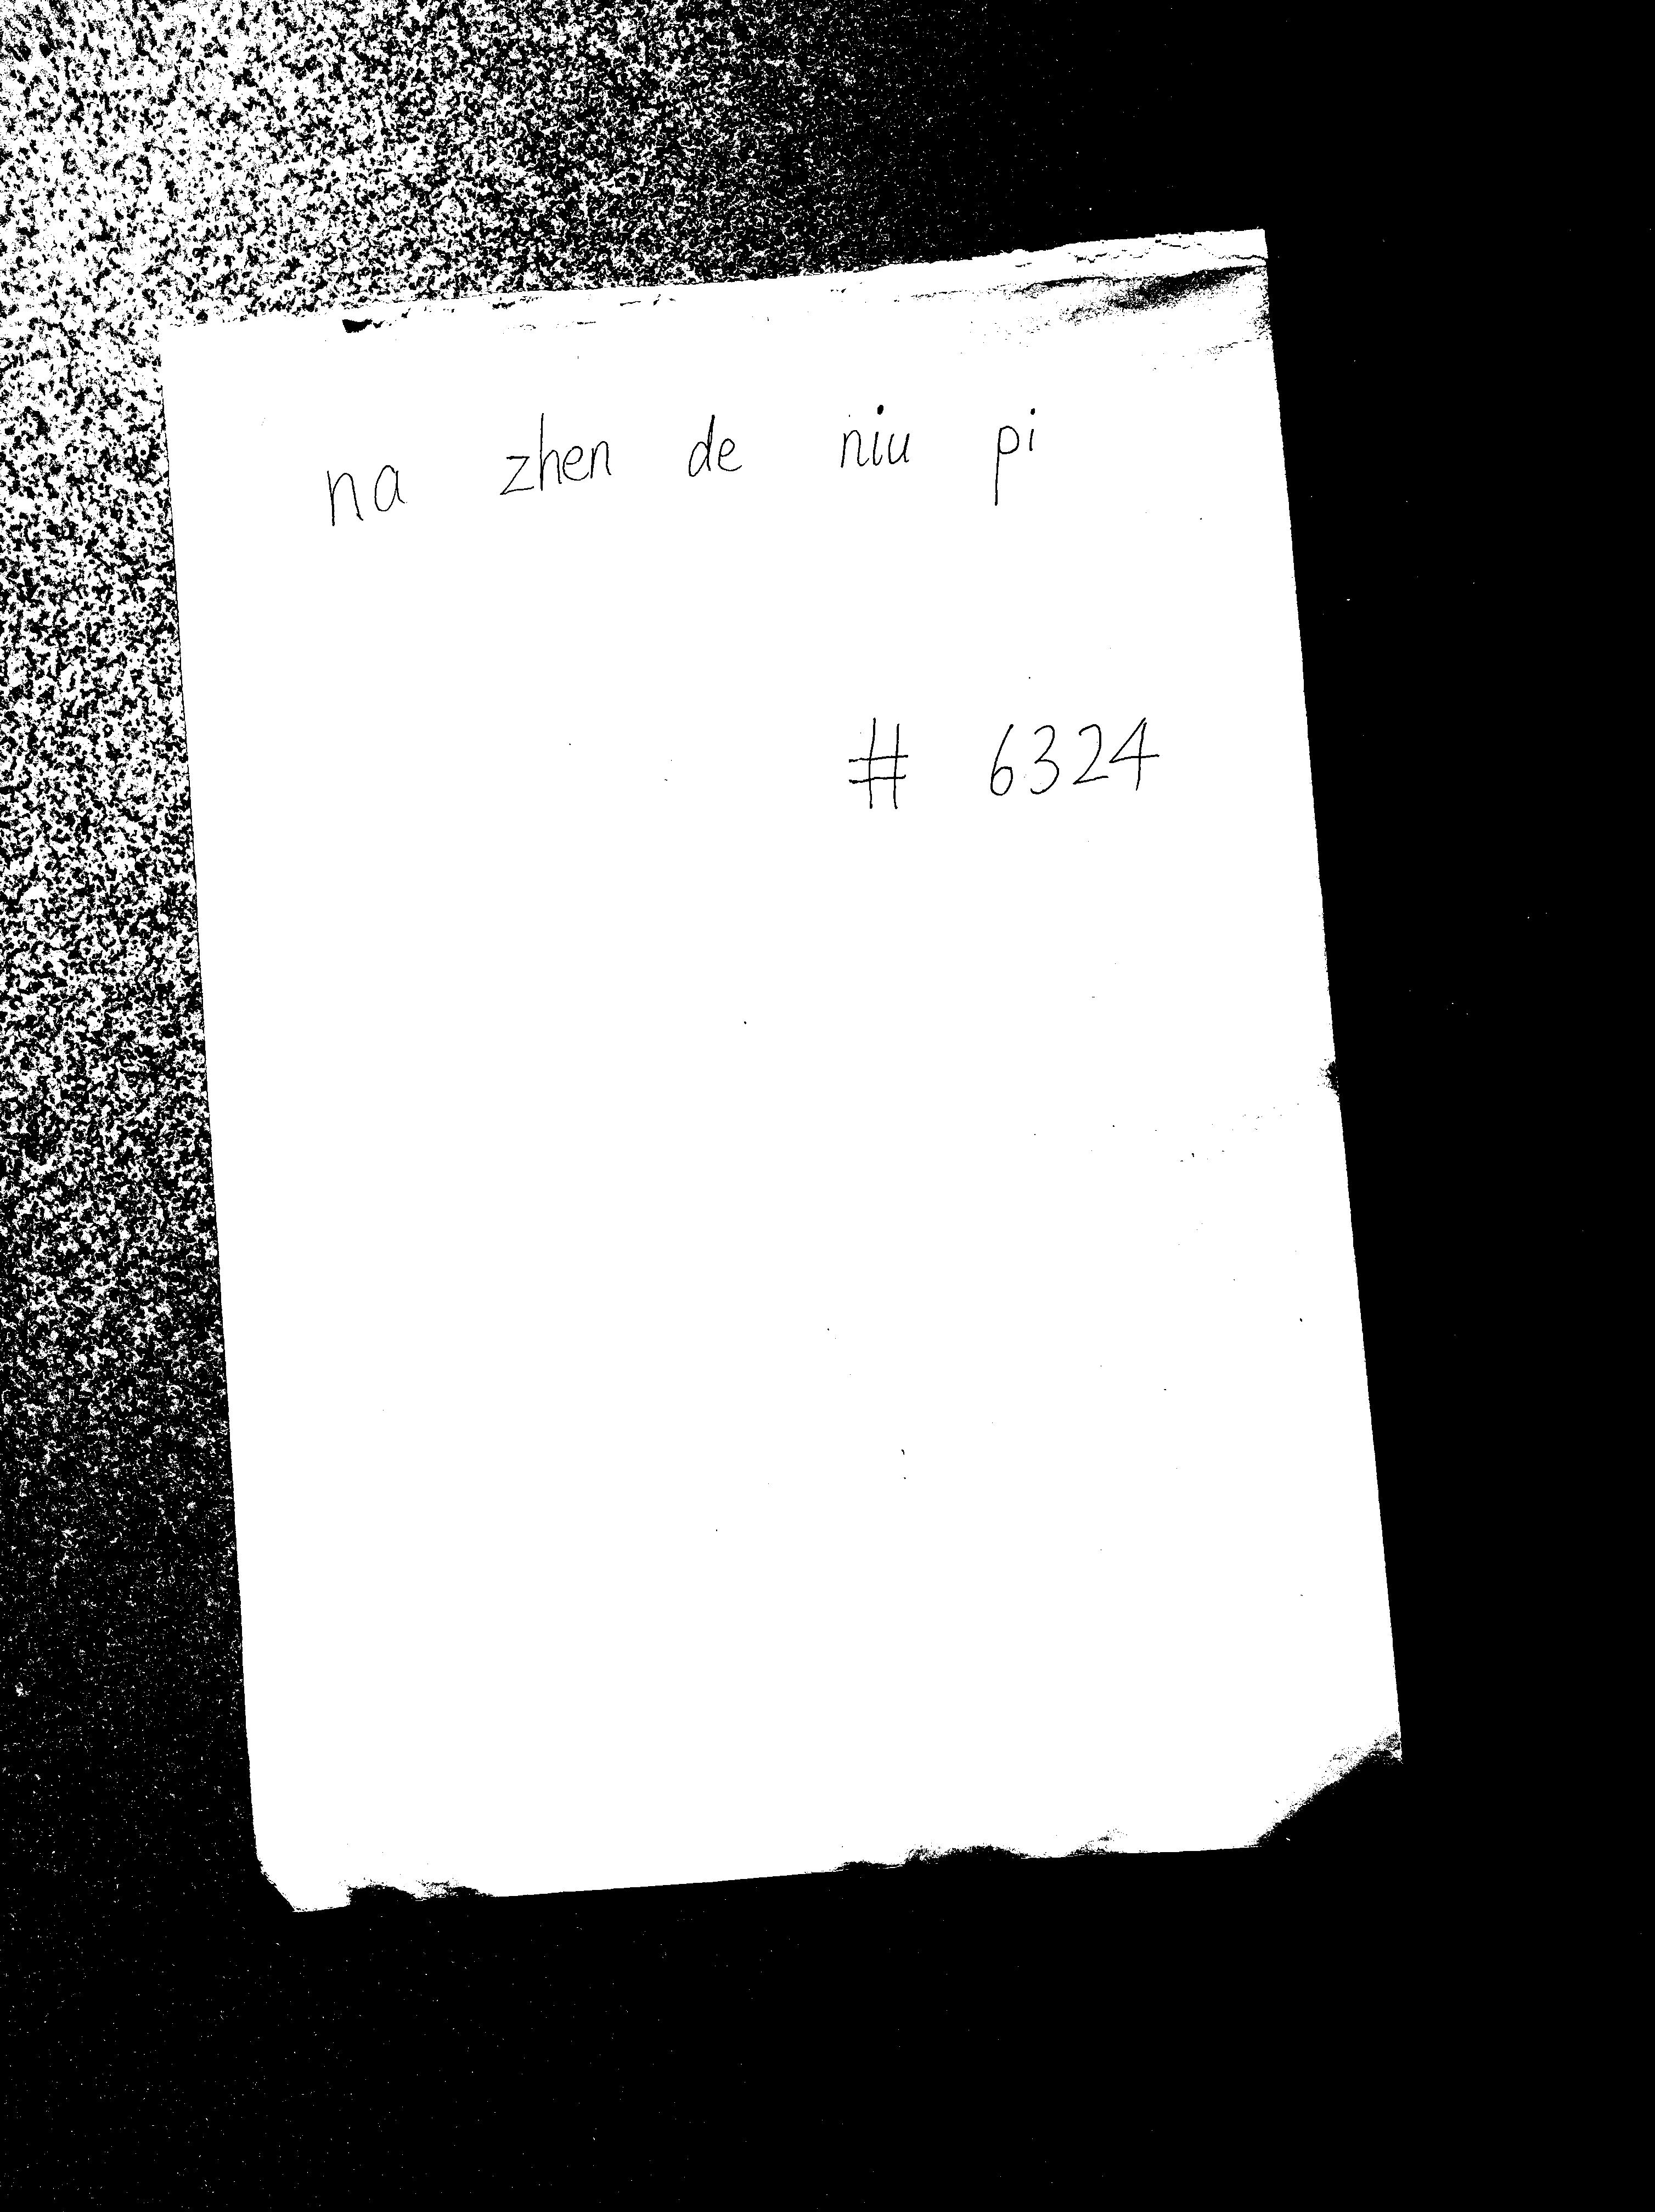 na zhen de niu pi
# 6324